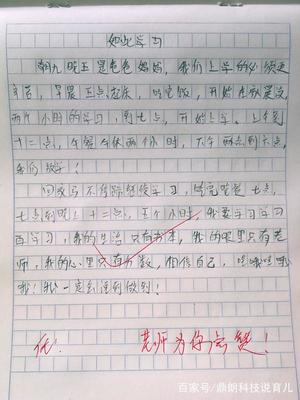 如此学习
朝九晚五是爸爸妈妈，我们上学的必须更
辛苦，早晨五点起床，吃完饭，开始
两个小时的学习，到七点，开始上学。上午到
十二点，午餐午休两个小时，下午两点到六点，
我们放学！
回家马不停蹄继续学习，吃完晚饭七点，
七点到晚上十二点，五个小时，我要学习学习
再学习，我的生活只有书本，我的眼里只有老
师，我的心里只有分数，相信自己，哦哦哦哦
哦！我一定会证到做到！
优！ 老师为你点赞！
百家号/鼎朗科技说育儿